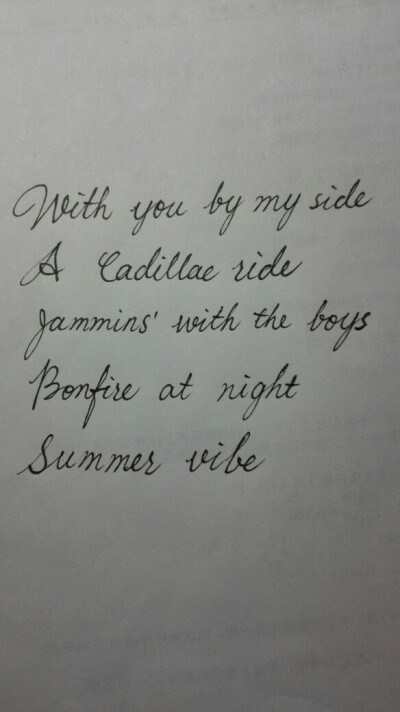 With you by my side
A Cadillac ride
Jammins' with the boys
Bonfire at night
Summer vibe